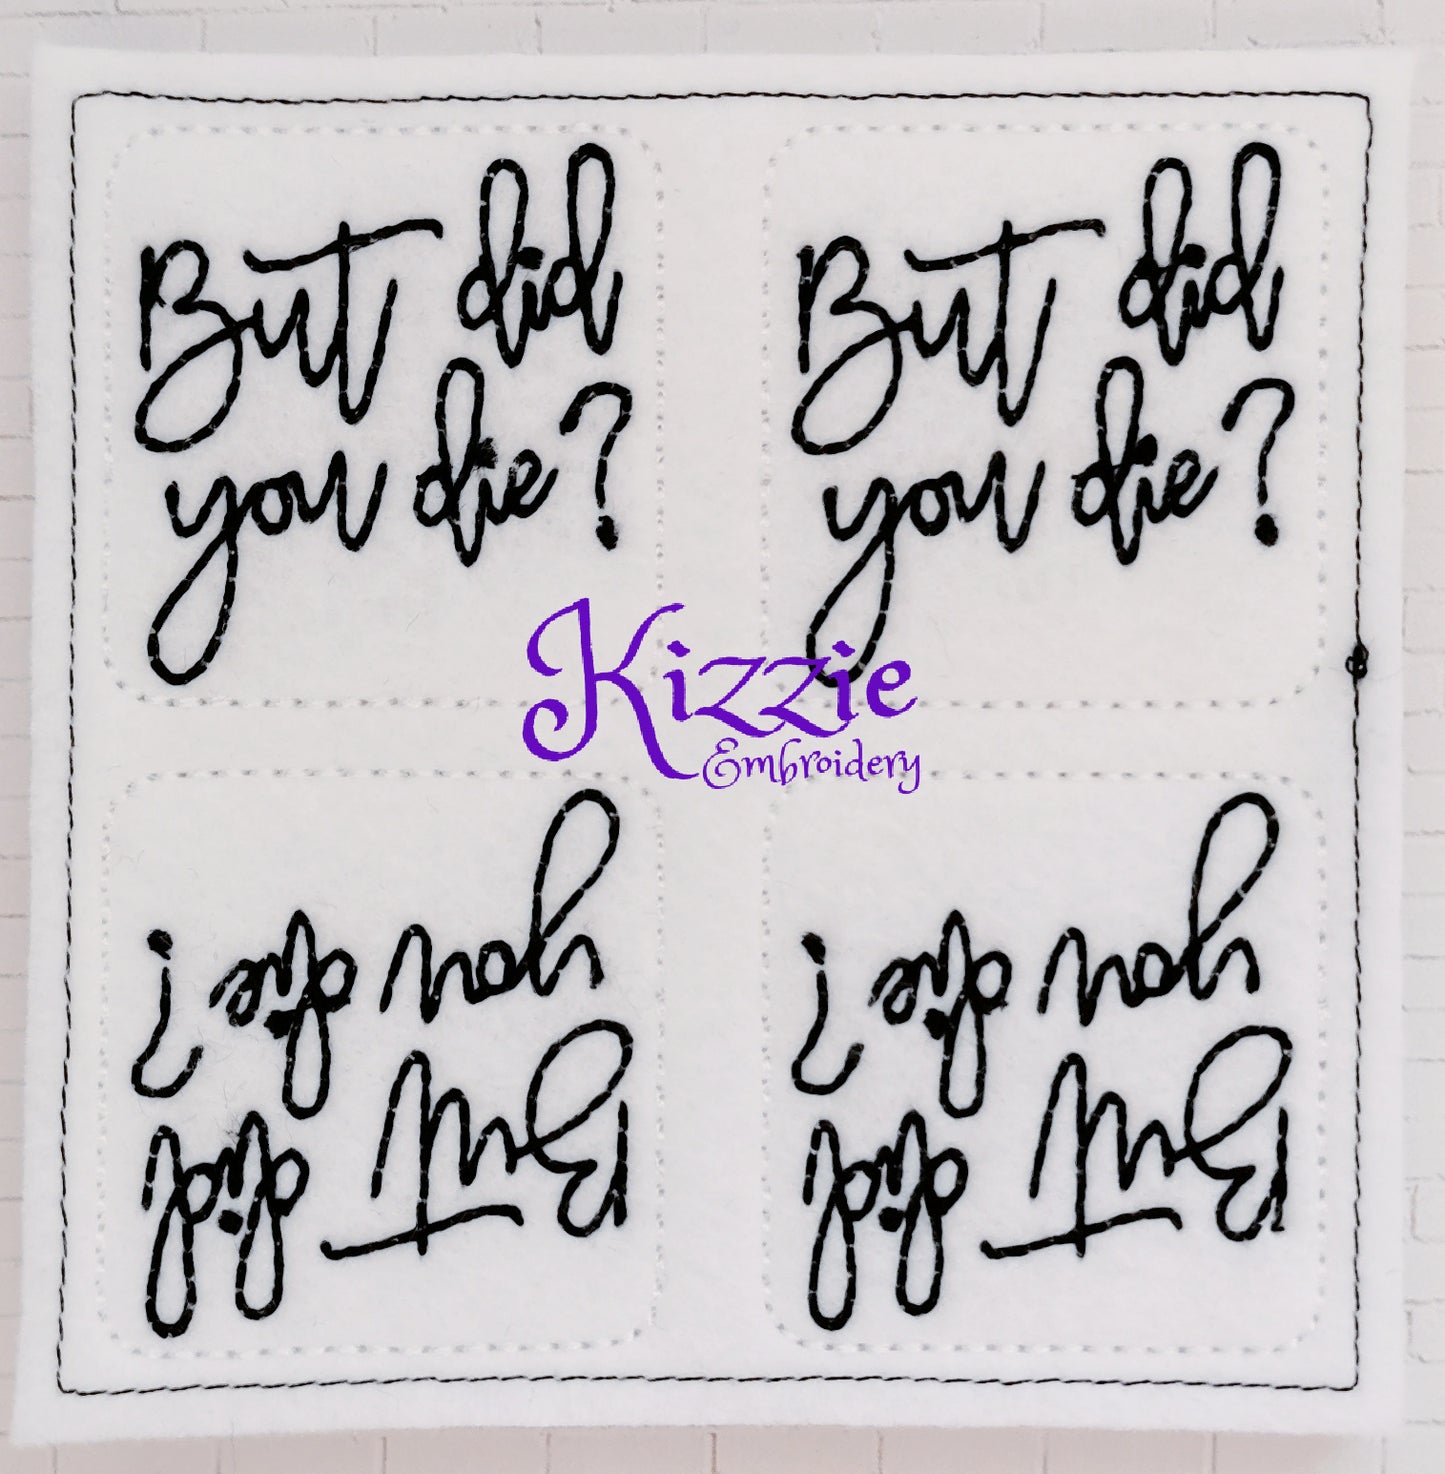 But did
you die?
But did
you die?
Kizzie
Embroidery
But did
you die?
But did
you die?